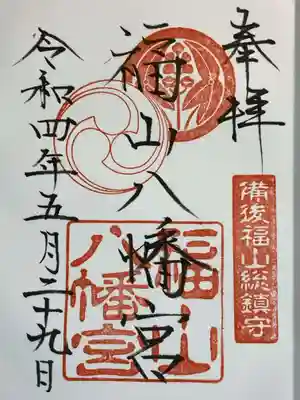 奉拝
備後福山総鎮守
福山八幡宮
福山八幡宮
令和四年五月二十九日